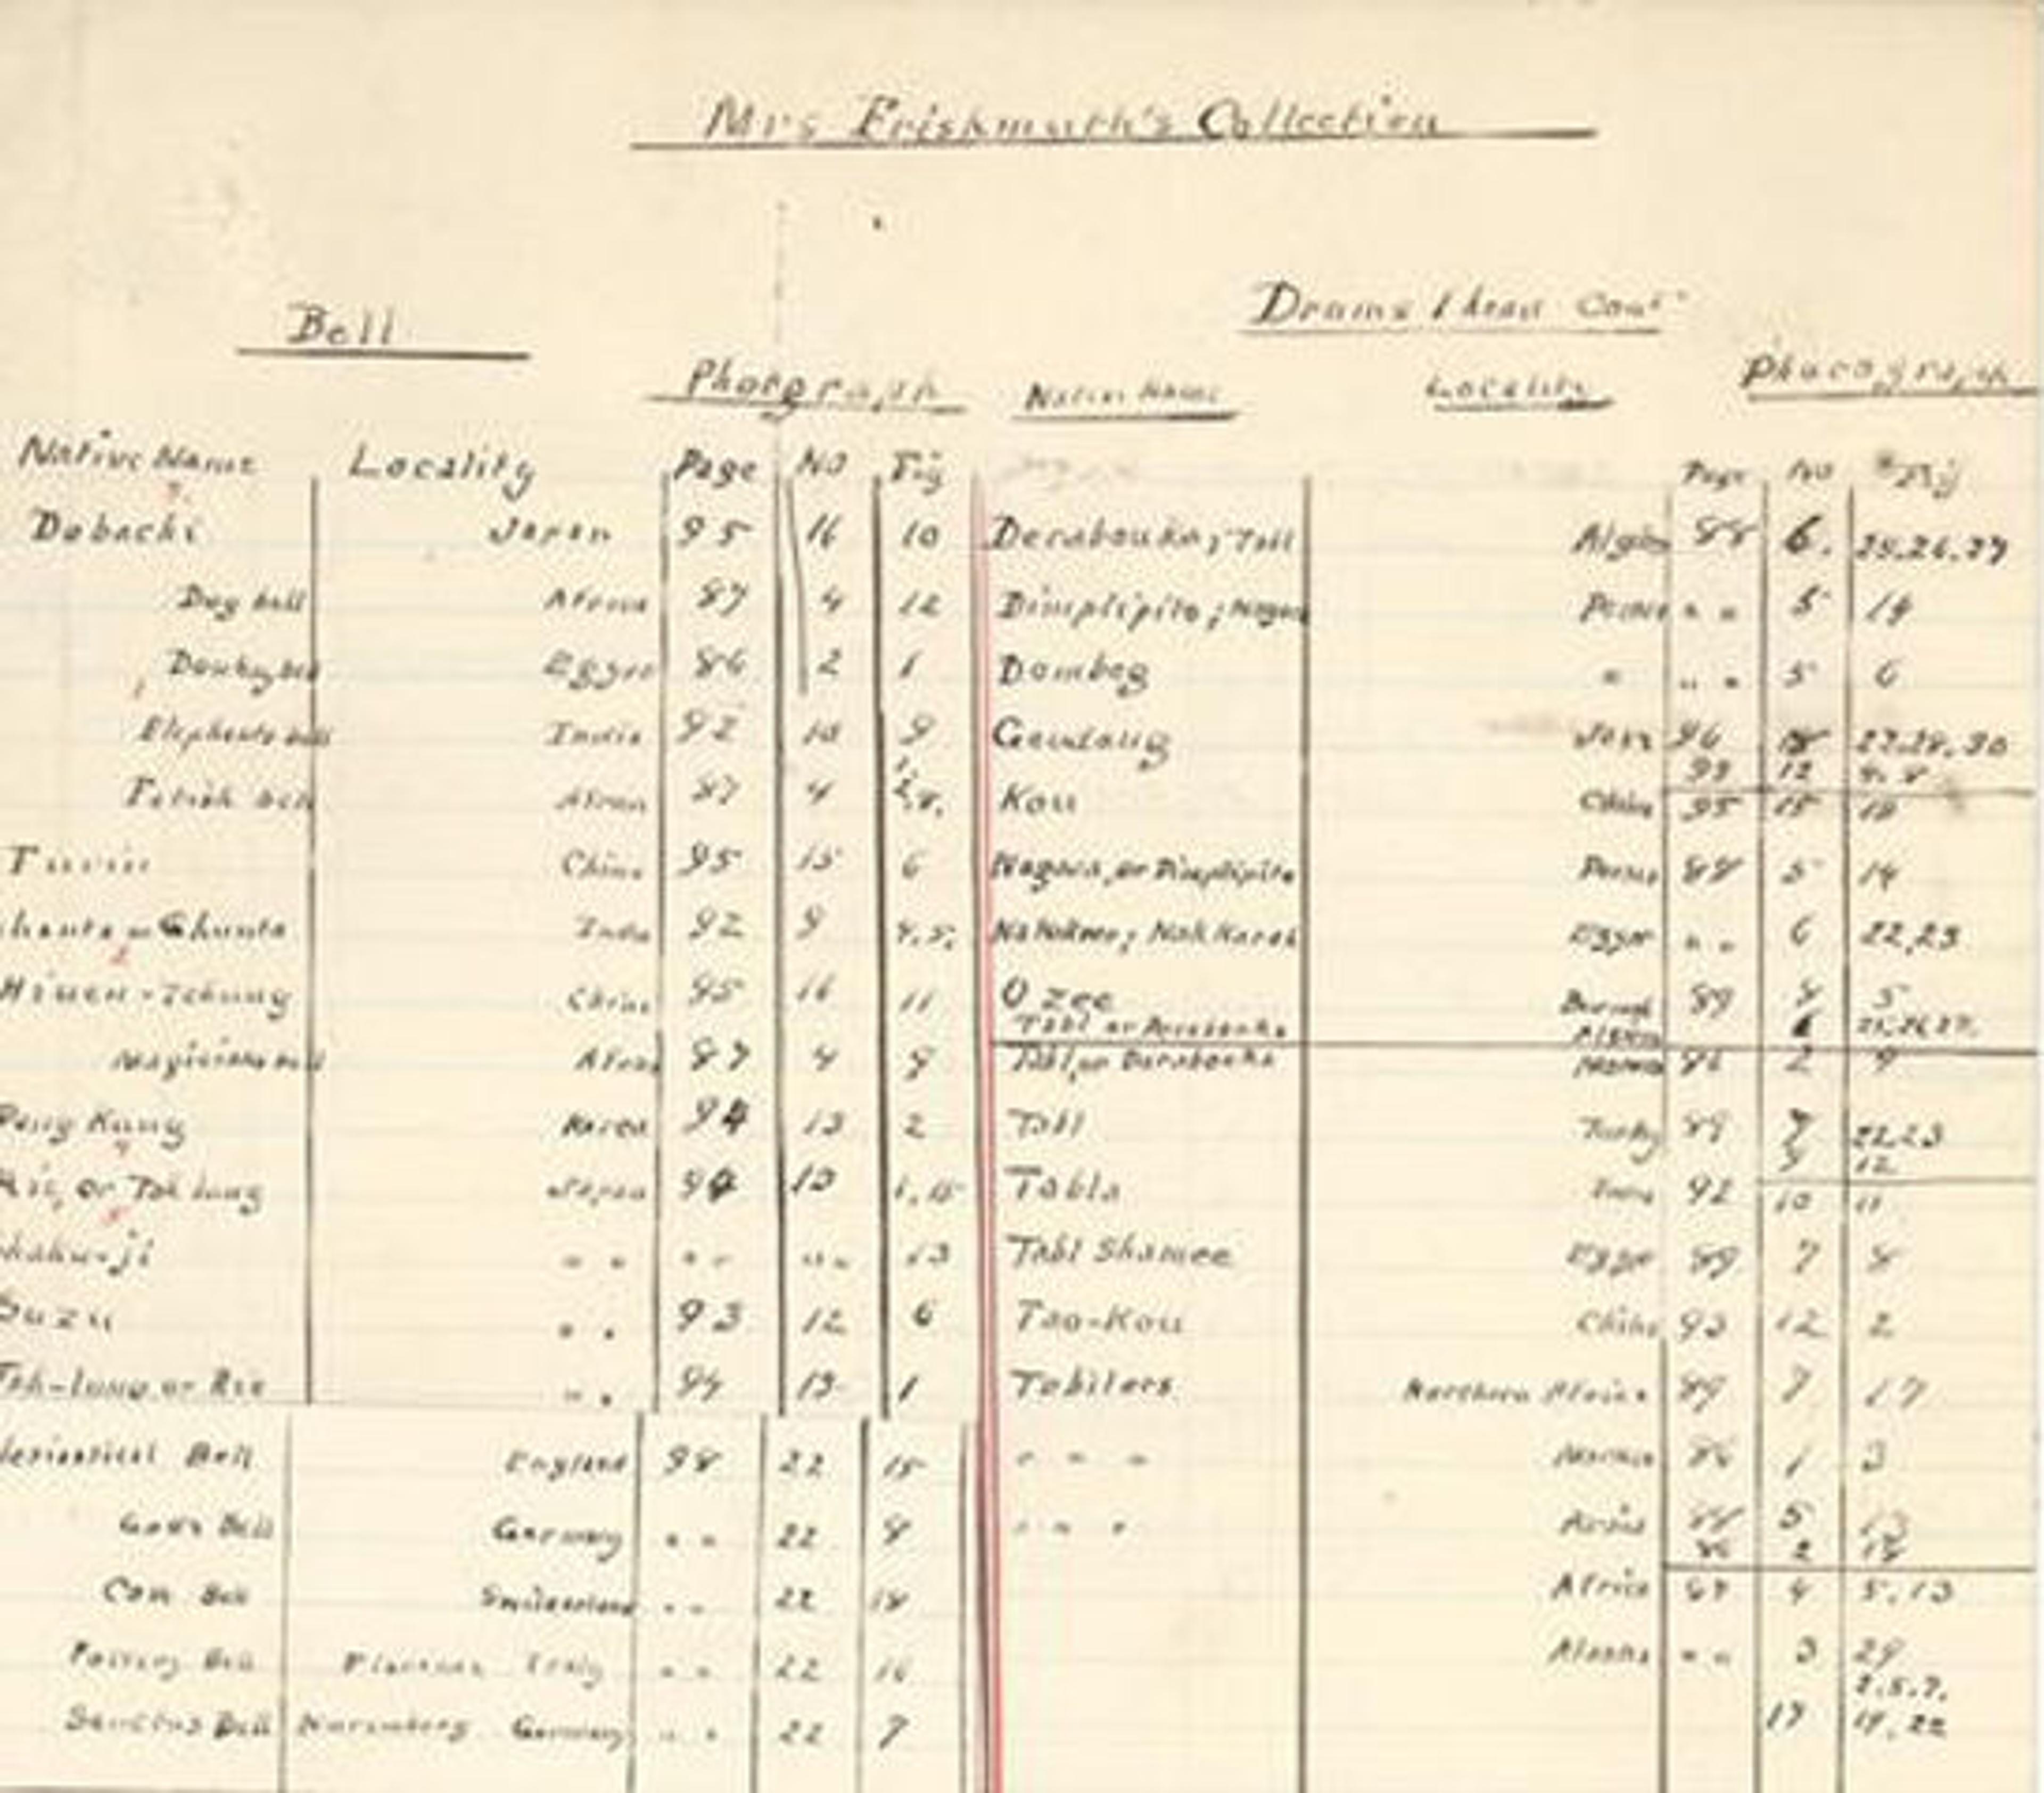 Mrs Frishmuth's Collection
Bell
Photgraph
Native Name Locality Page No Fig
Dobachi Japan 95 16 10
Dog bell Africa 87 4 12
Donkey bell Egypt 86 2 1
Elephants bell India 92 10 9
Fetish bell Africa 87 4
China 95 15 6
Ghunta India 92 9 4.5.
Hiuen-Tchung China 95 16 11
Magicians bell Africa 87 4 8
Kung Korea 94 13 2
Rie, or Tak lung Japan 94 13 1,15
" " " " " " 13
Suzu " " 93 12 6
Tak-lung or Rie " " 94 13 1
Bell England 98 22 15
Goat Bell Germany " " 22 8
Cow Bell Switzerland " " 22 14
Pottery Bell Florence Italy " " 22 16
Sanctus Bell Nuremberg Germany " " 22 7
Drums 1 head Cont
Native Name Locality Photograph
Page No Fig
Derabouka; Tabl Algiers 88 6. 25.26.27
Dimplipito; Nagara Persia " " 5 14
Dombeg " " " 5 6
Java 96 18 27.28.30
93 12
Kou China 95 15 10
Nagara, or Dimplipito Persia 88 5 14
Egypt " " 6 22,23
Ozee Burmah 89 8 5
Tabl or Darabouka Algiers 6 25,26,27.
Tabl, or Darabouka 86 2 9
Tabl Turkey 89 7 22,23
9 12
Tabla India 92 10 11
Tabl Shamee Egypt 89 7 8
Tao-Kou China 93 12 2
Tobilets Northern Africa 89 7 17
" " " 86 1 3
" " " 88 5 13
86 2
Africa 87 4 5.13
Alaska " " 3 29
2.5.7.
17 19.22